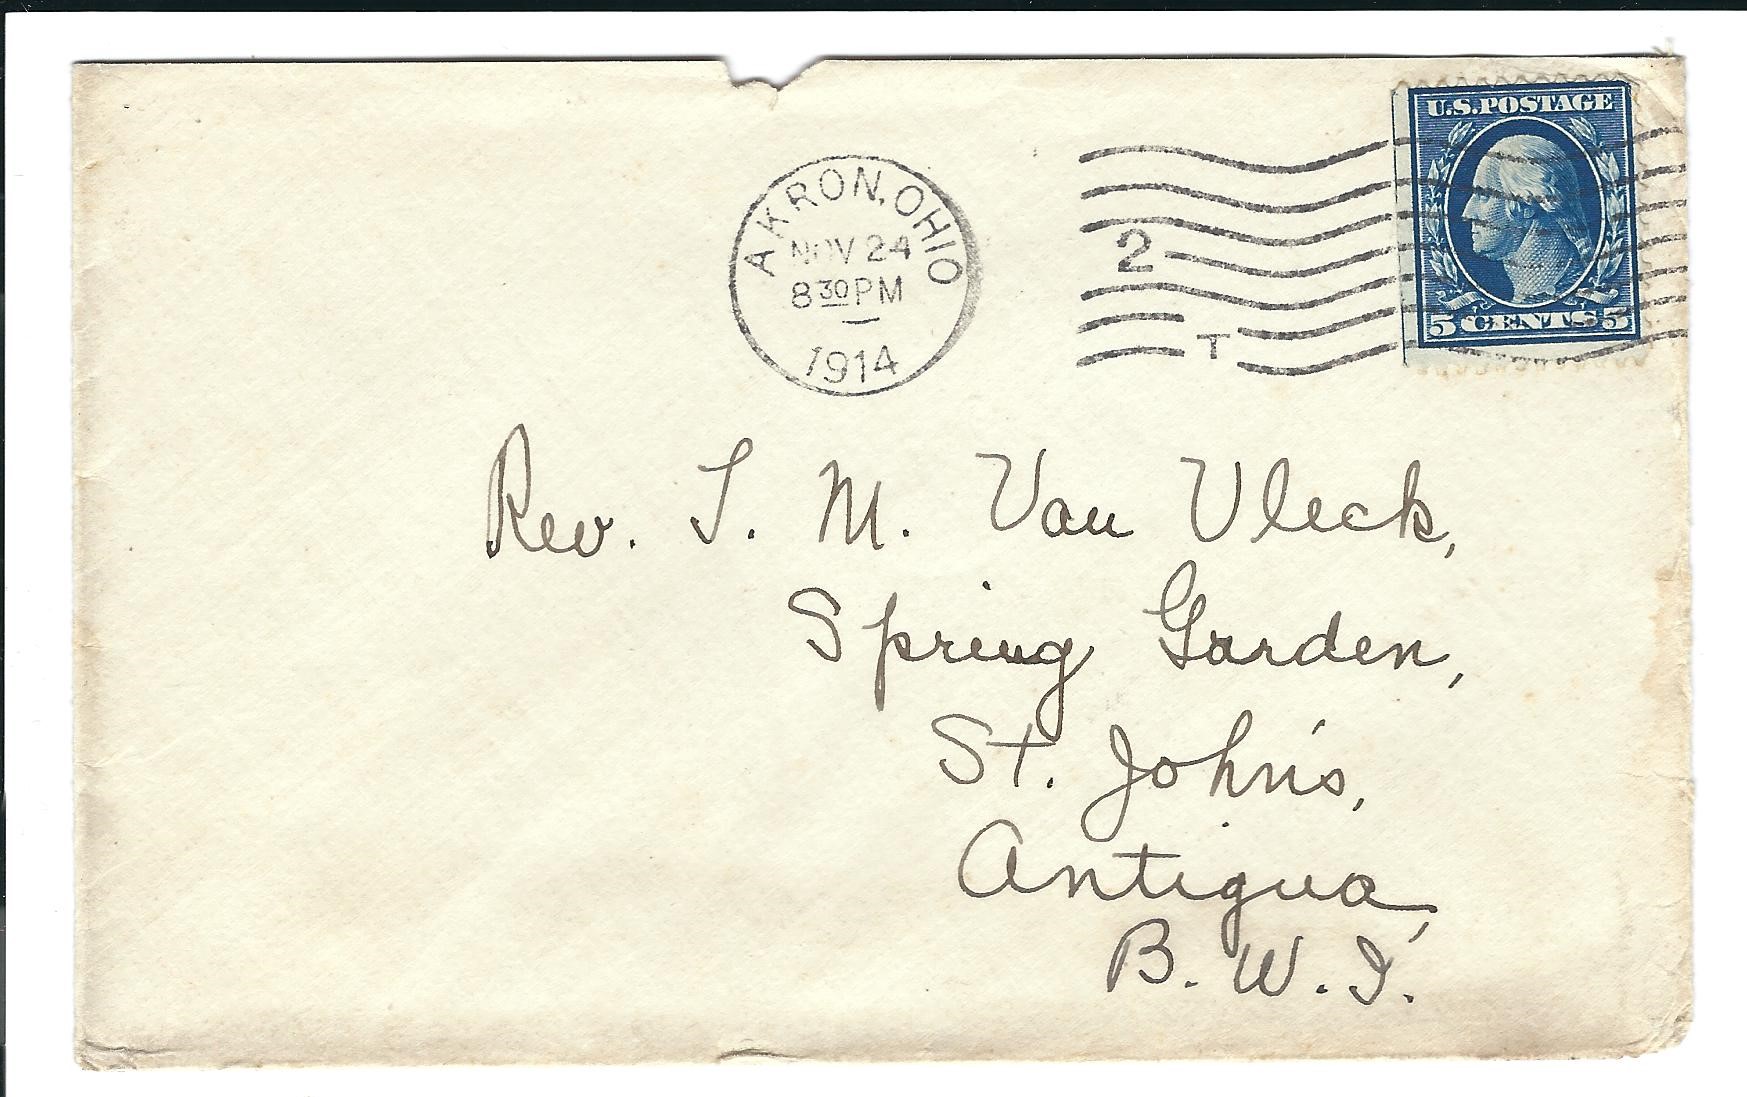 U.S. POSTAGE
5 CENTS 5
AKRON, OHIO
NOV 24
8 30 PM
1914
2
T
Rev. T. M. Van Vleck,
Spring Garden,
St. John's,
Antigua,
B. W. I.